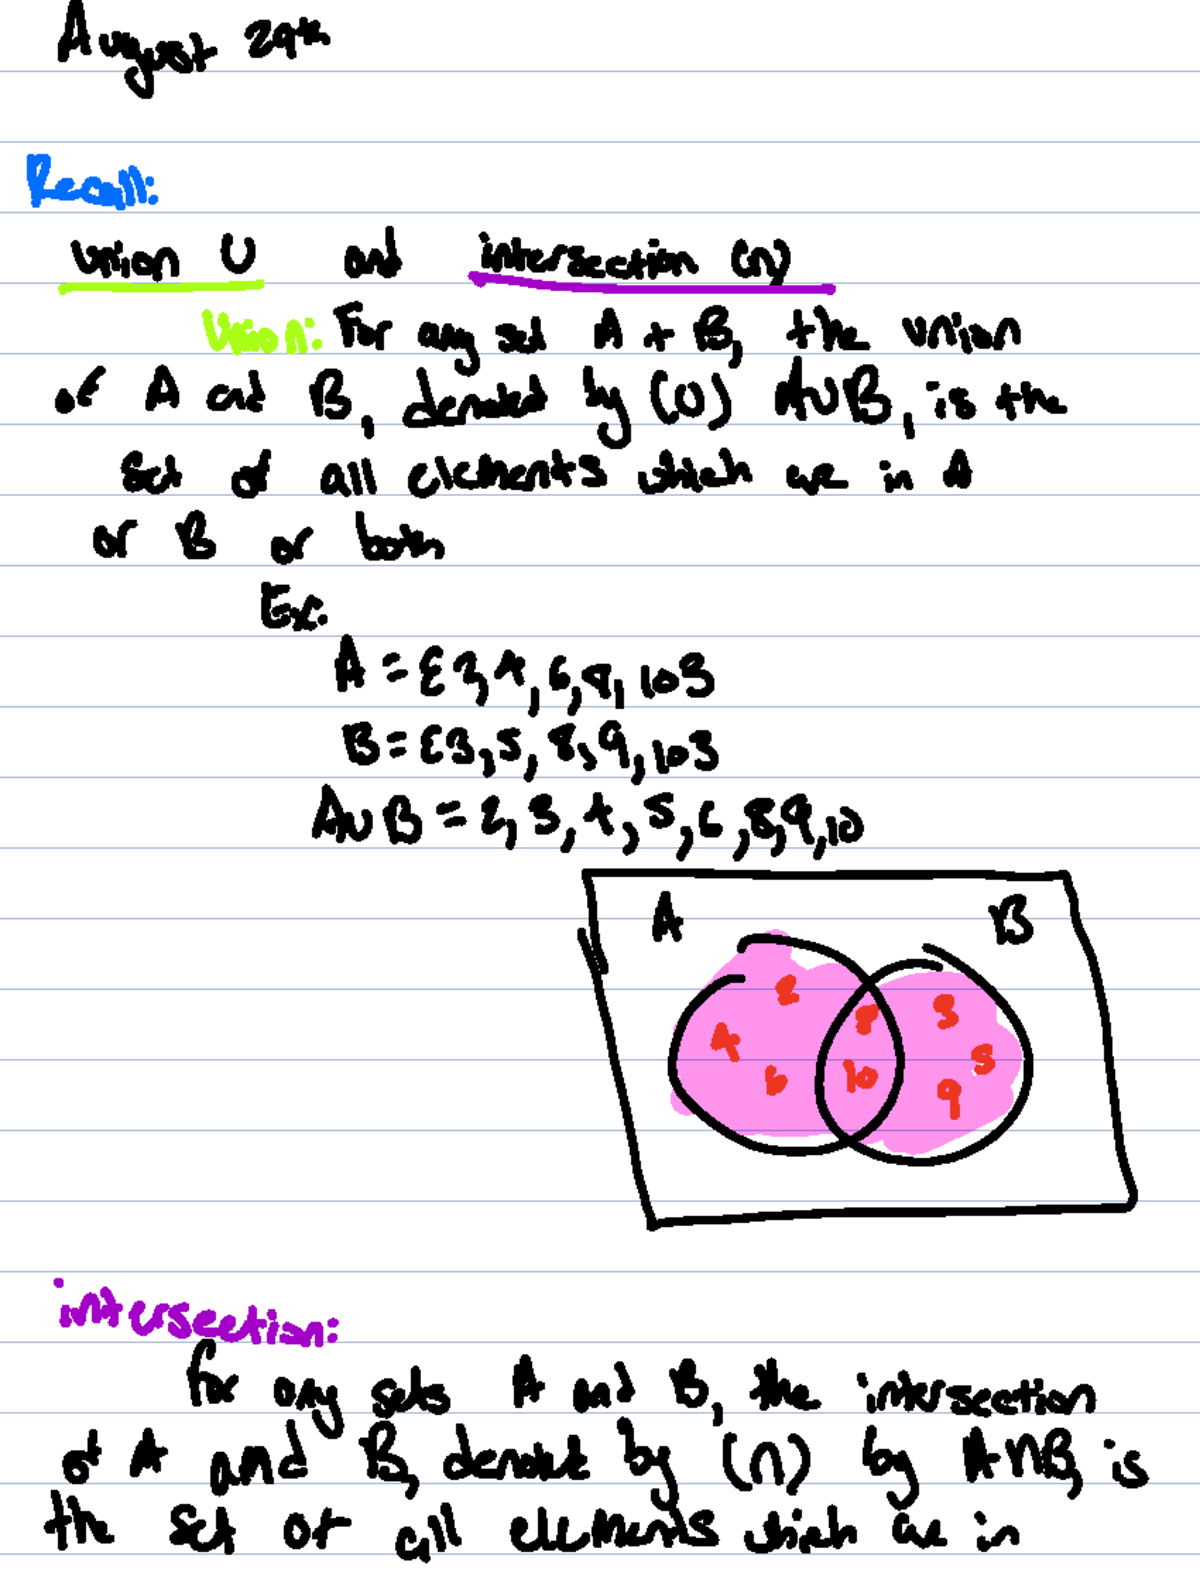 August 29th
Recall:
Union U and intersection (∩)
Union: For any set A + B, the union
of A and B, denoted by (U) AUB, is the
set of all elements which are in A
or B or both
Ex.
A = {2,4,6,8,10}
B = {3,5,8,9,10}
AUB = 2,3,4,5,6,8,9,10
A B
2
8 3
4
5
6 10 9
intersection:
for any sets A and B, the intersection
of A and B, denote by (∩) by A∩B, is
the set of all elements which are in